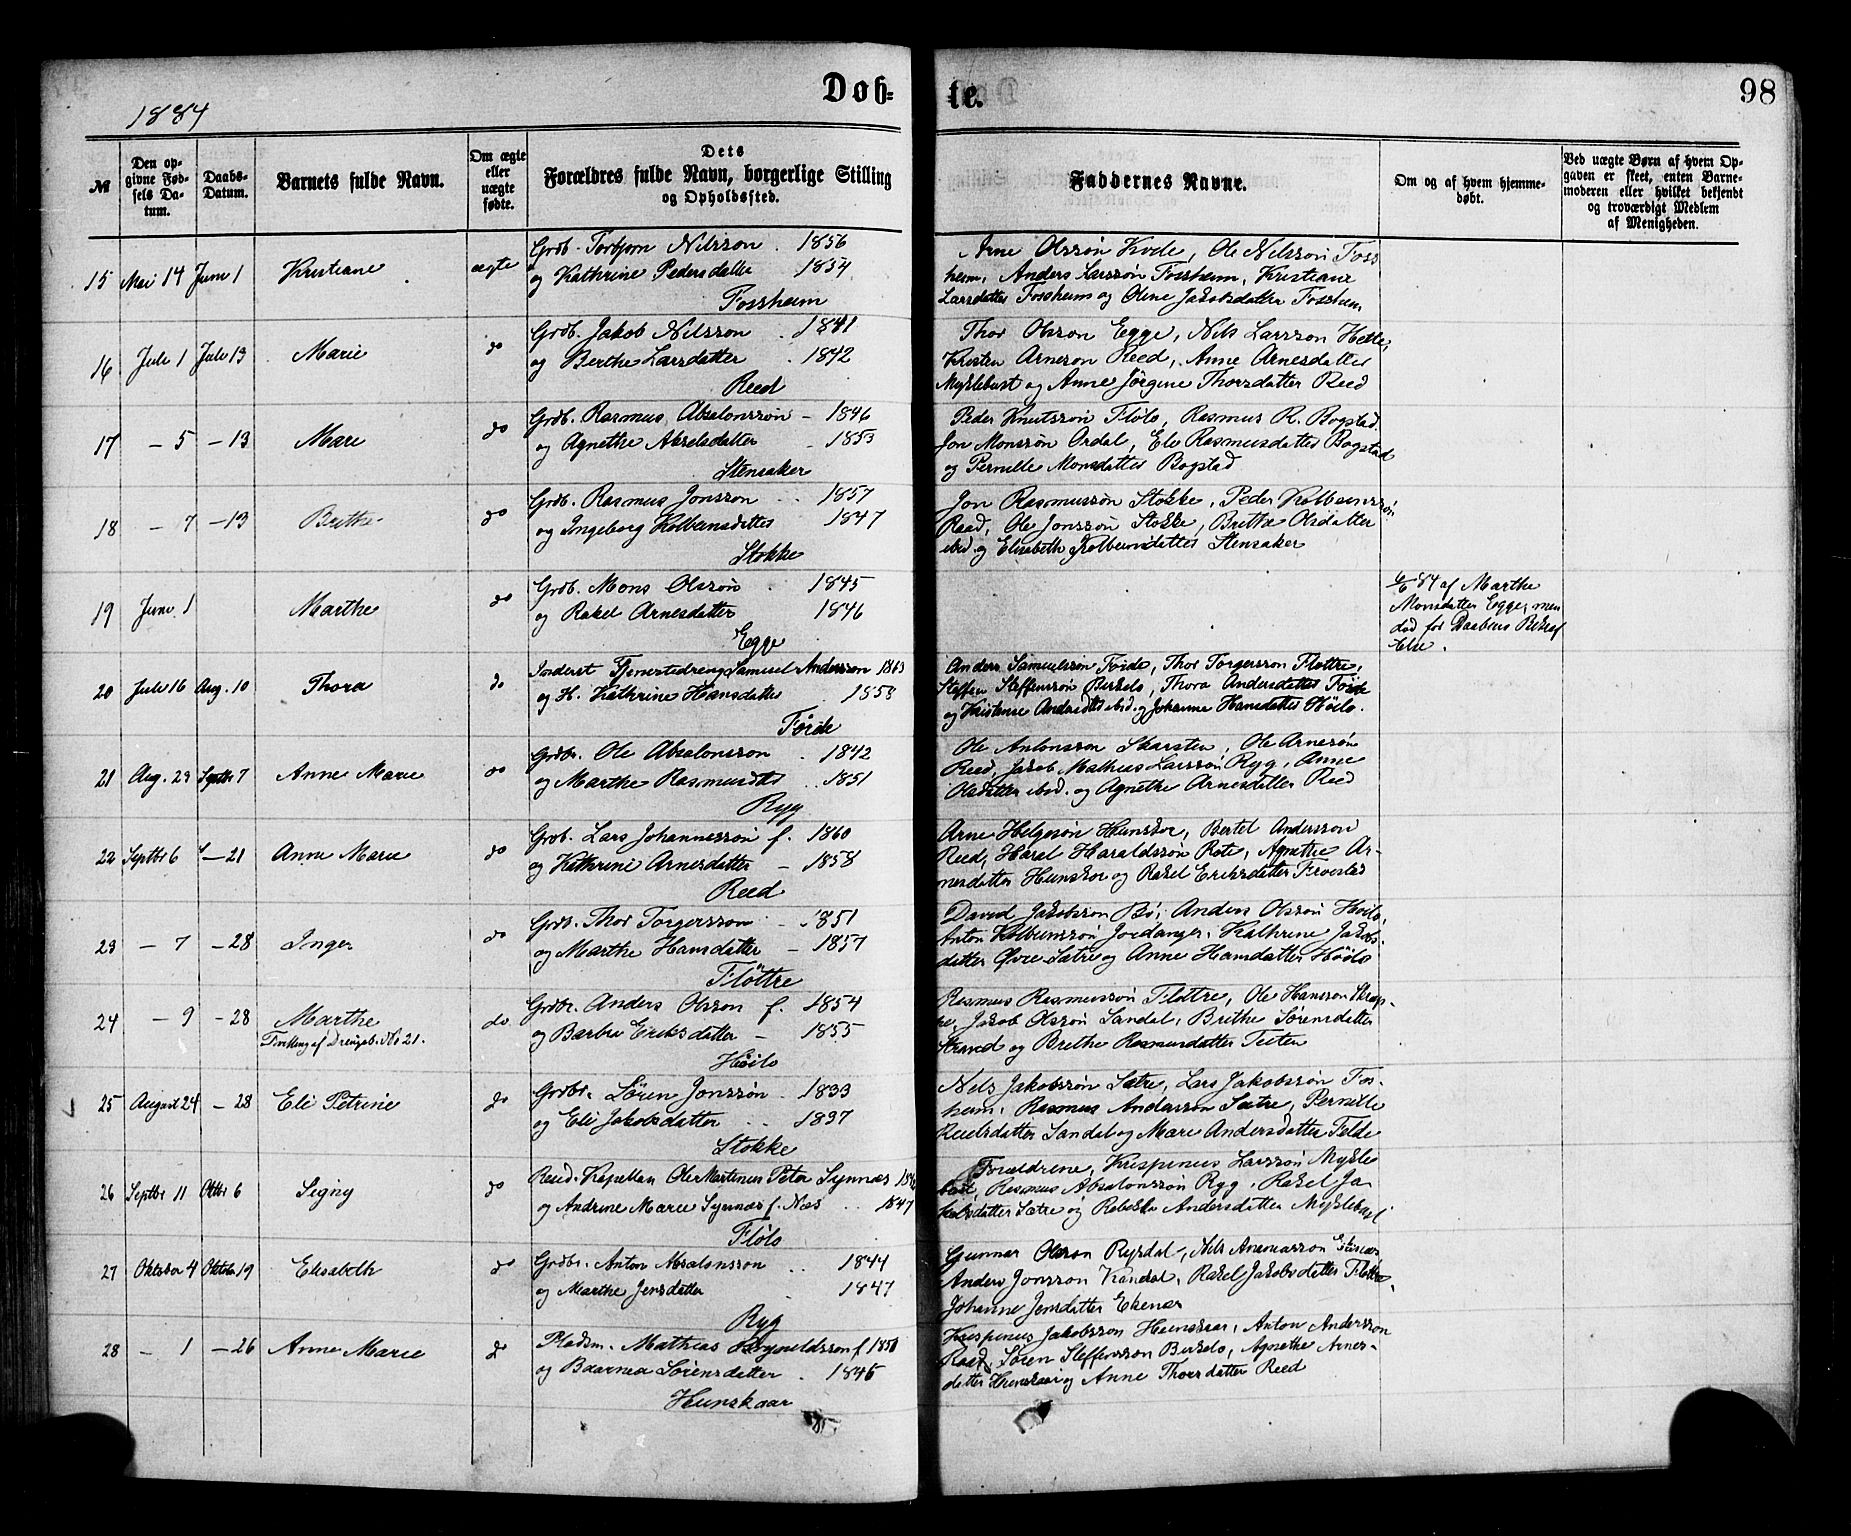 1884
Døb-
te.
98
№
Den op-
givne Fød-
sels Da-
tum.
Daabs-
Datum.
Barnets fulde Navn.
Om ægte
eller
uægte
fødte.
Dets
Forældres fulde Navn, borgerlige Stilling
og Opholdssted.
Faddernes Navne.
Om og af hvem hjemme-
døbt.
Ved uægte Børn af hvem Op-
gaven er skeet, enten Barne-
moderen eller hvilket bekjendt
og troværdigt Medlem
af Menigheden.
15 Mai 14 Juni 1 Kristiane ægte
Grdb. Torbjørn Nilsson . 1856
og Kathrine Pedersdatter 1854
Fossheim
Arne Olssøn Kvile, Ole Nilssøn Foss
heim, Anders Larssøn Fossheim, Kristiane
Larsdatter Fossheim og Oline Jakobsdatter Fossheim
16 Juli 1 Juli 13 Marie do
Grdb. Jakob Nilsson . 1841
og Berthe Larsdatter . 1842
Reed
Thor Olsson Egge, Nils Larsson Hetle,
Kristen Arneson Reed, Anne Arnesdatter
Myklebust og Anne Jørgine Thorsdatter Reed
17 - 5 - 13 Mari do
Grdb. Rasmus Absalonssøn - 1846
og Agnethe Akselsdatter - 1853
Stensaker
Peder Knutssøn Flølo, Rasmus R. Bogstad.
Jon Monssøn Ordal, Eli Rasmusdatter Bogstad
og Pernille Monsdatter Bogstad
18 - 7 - 13 Brithe do
Grdb. Rasmus Jonsson . . 1857
og Ingeborg Kolbeinsdatter 1847
Stokke
Jon Rasmussøn Stokke, Peder Kolbeinssøn
Reed, Ole Jonssøn Stokke, Brithe Olsdatter
ibid. og Elisabeth Kolbeinsdatter Stensaker
19 Juni 1 Marthe do
Grdb. Mons Olssøn . 1845
og Rakel Arnesdatter 1846
Egge
84 af Marthe
Monsdatter Egge, men
død for Daabens Bekræf
telse.
20 Juli 16 Aug. 10 Thora do
Inderst Tjenestedreng Samuel Anderssen 1863
og H. Kathrine Hansdatter . 1858
Førde
Anders Samuelssøn Førde, Thor Torgersson Fløttre,
Steffen Steffenssøn Birkelo, Thora Andersdatter Førde
og Kristense Andersdtr ibid. og Johanne Hansdatter Høilo.
21 Aug. 29 Septbr 7 Anne Marie do
Grdbr. Ole Absalonsson . 1842
og Marthe Rasmusdtr . . 1851
Ryg
Ole Antonsson Skarsten, Ole Arnesøn
Reed, Jakob Mathias Larssøn Ryg, Anne
Olsdatter ibid. og Agnethe Arnesdatter Reed
22 Septbr 6 - 21 Anne Marie do
Grdb. Lars Johannessøn f. 1860
og Kathrine Arnesdatter - 1858
Reed
Arne Helgesøn Hunskor, Bertel Andersson
Reed, Haral Haraldssøn Rote, Agnethe Ar-
nesdatter Hunskor og Rakel Eriksdatter
23 - 7 - 28 Inger do
Grdb. Thor Torgersson - 1851
og Marthe Hansdatter - 1857
Fløttre
David Jakobsson Bø, Anders Olssøn Høilo,
Anton Kolbeinssøn Jordanger, Kathrine Jakobs-
datter Øvre Sætre og Anne Hansdatter Høilo
24 - 9 - 28 Marthe do
Tvilling af Drengeb. No 21.
Grdbr. Anders Olsson f. 1854
og Barbra Eriksdatter - 1855
Høilo
Rasmus Rasmussøn Fløttre, Ole Hansson
Jakob Olssøn Sandal, Brithe Sørensdatter
Strand og Brithe Rasmusdatter Teiten
25 August 24 - 28 Eli Petrine do
Grdbr. Søren Jonssøn . 1833
og Eli Jakobsdatter . . 1837
Stokke
Nils Jakobssøn Sætre, Lars Jakobssøn Fos-
heim, Rasmus Anderssøn Sætre, Pernille
Sandal og Mari Andersdatter Felde
26 Septbr 11 Oktbr 6 Signy do
Resid. Kapellan Ole Martinus Peter Synnæs
og Andrine Marie Synnæs f. Næs . . 1847
Flølo
Forældrene, Krispinus Larssøn Mykle
bust, Rasmus Absalonssøn Ryg, Rakel Ja-
kobsdatter Sætre og Rebekka Andersdatter Myklebust
27 Oktober 4 Oktober 19 Elisabeth do
Grdbr. Anton Absalonsson . . 1844
og Marthe Jensdatter . 1847
Ryg
Gunnar Olsson Rysdal, Nils Ananiasson Ekenæs
Anders Jonsson Kandal, Rakel Jakobsdatter Fløttre,
Johanne Jensdatter Ekenæs
28 - 1 - 26 Anne Marie do
Pladsm. Mathias f 1851
og Sørensdatter . 1845
Hunskaar
Krispinus Jakobsson Hunskaar, Anton Andersson
Reed, Søren Steffensson Birkelo, Agnethe Arnes-
datter Hunskaar og Anne Thorsdatter Reed